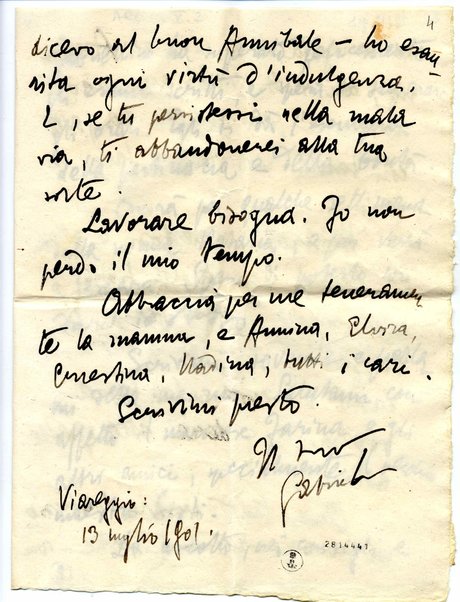 4
dicevo al buon Annibale – ho esau-
rita ogni virtù d'indulgenza.
E, se tu persistessi nella mala
via, ti abbandonerei alla tua
sorte.
Lavorare bisogna. Io non
perdo il mio tempo.
Abbraccia per me teneramen
te la mamma, e Annina, Elvira,
Ernestina, Nadina, tutti i cari.
Scrivimi presto.
Il tuo
Gabriele
Viareggio:
13 luglio 1901.
2814441